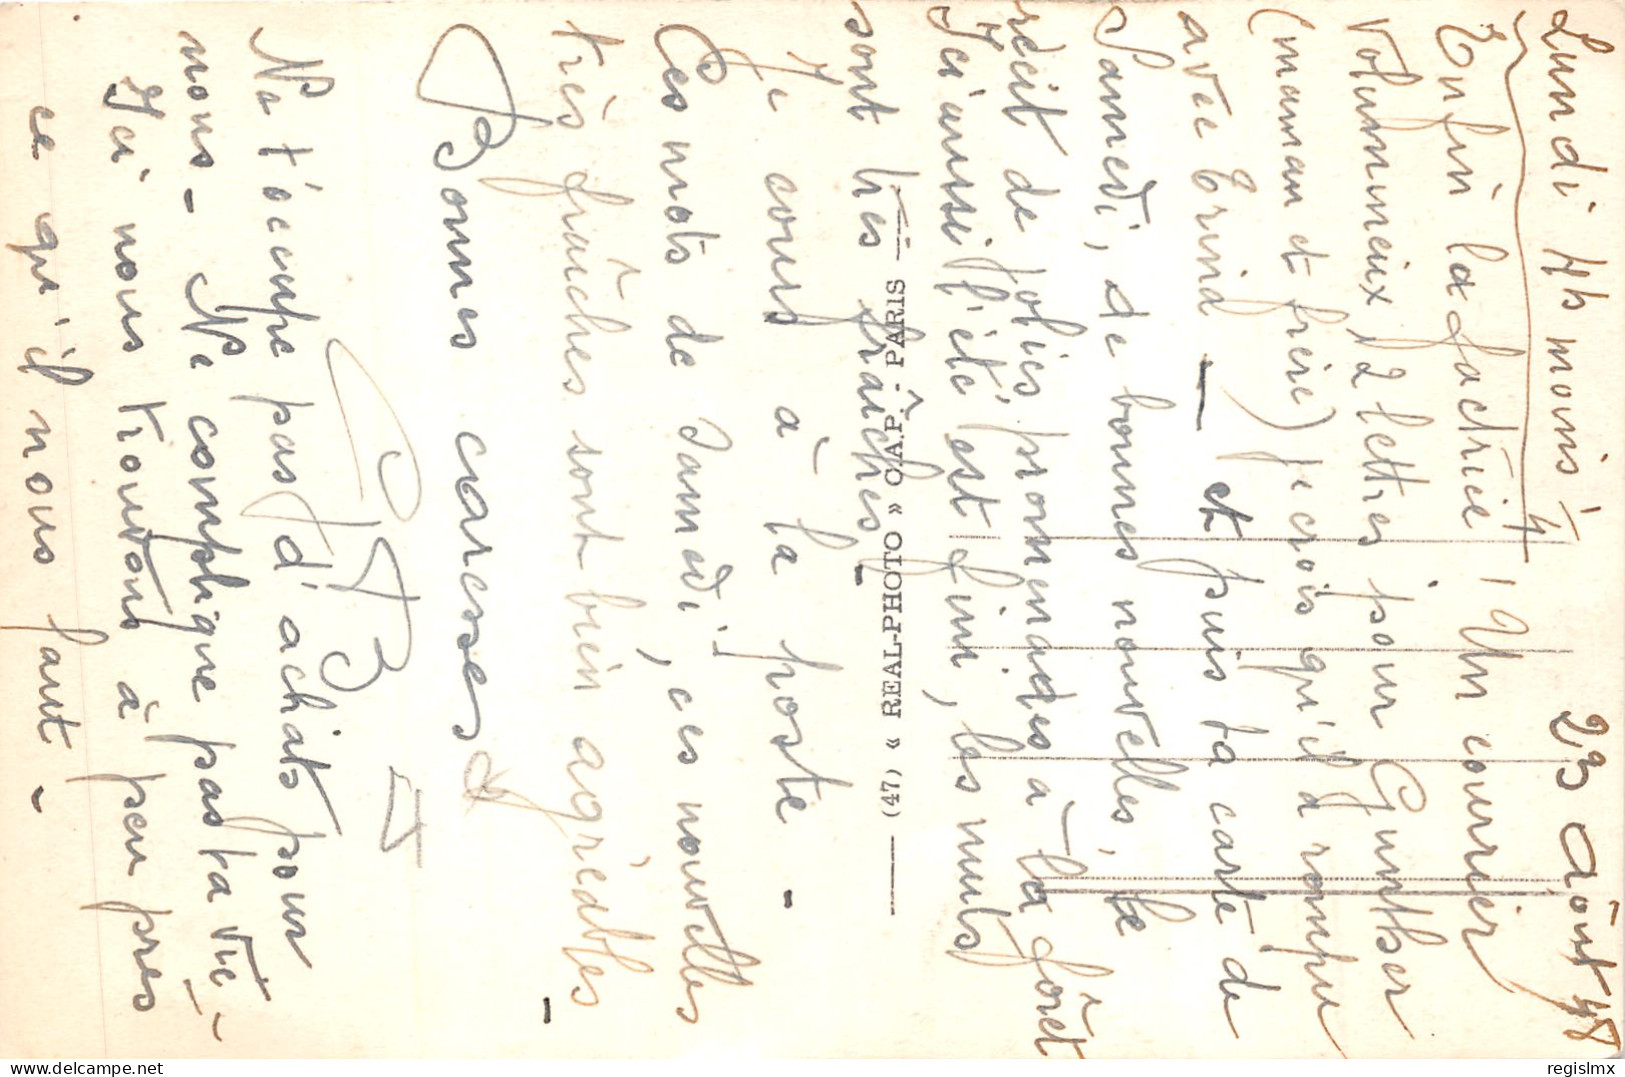 Lundi 4h moins 1/4
23 août 48
Enfin la factrice! Un courrier
volumineux, 2 lettres pour Gunther
(maman et frère) je crois qu'il a rompu
avec Ernid — et puis ta carte de
Samedi, de bonnes nouvelles, le
récit de jolies promenades à la forêt
Ici aussi l'été est fini, les nuits
sont très fraiches.
Je cours à la poste -
Ces mots de Samedi, ces nouvelles
très fraîches sont bien agréables -
Bonnes caresses
Ne t'occupe pas d'achats pour
nous - Ne complique pas ta vie -
Ici nous trouvons à peu près
ce qu'il nous faut -
(47) « REAL-PHOTO » C.A.P. - PARIS
regislmx